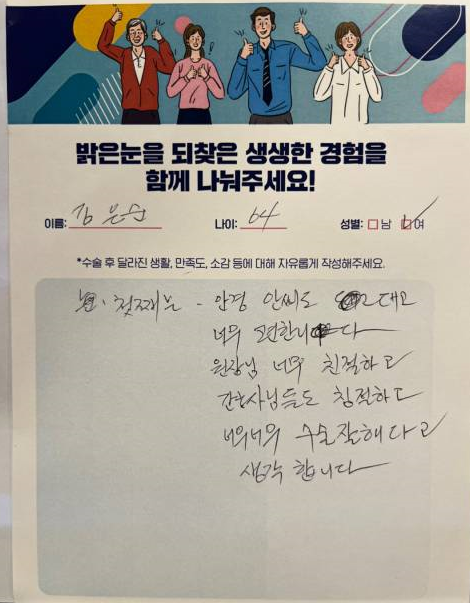 밝은눈을 되찾은 생생한 경험을
함께 나눠주세요!
이름: 김은순 나이: 64 성별: □ 남 □ 여
*수술 후 달라진 생활, 만족도, 소감 등에 대해 자유롭게 작성해주세요.
첫째는 - 안경 안써도 대고
너무 편한니다
원장님 너무 친절하고
간호사님들도 칭절하고
너의너의 수술잘해다고
생각 합니다